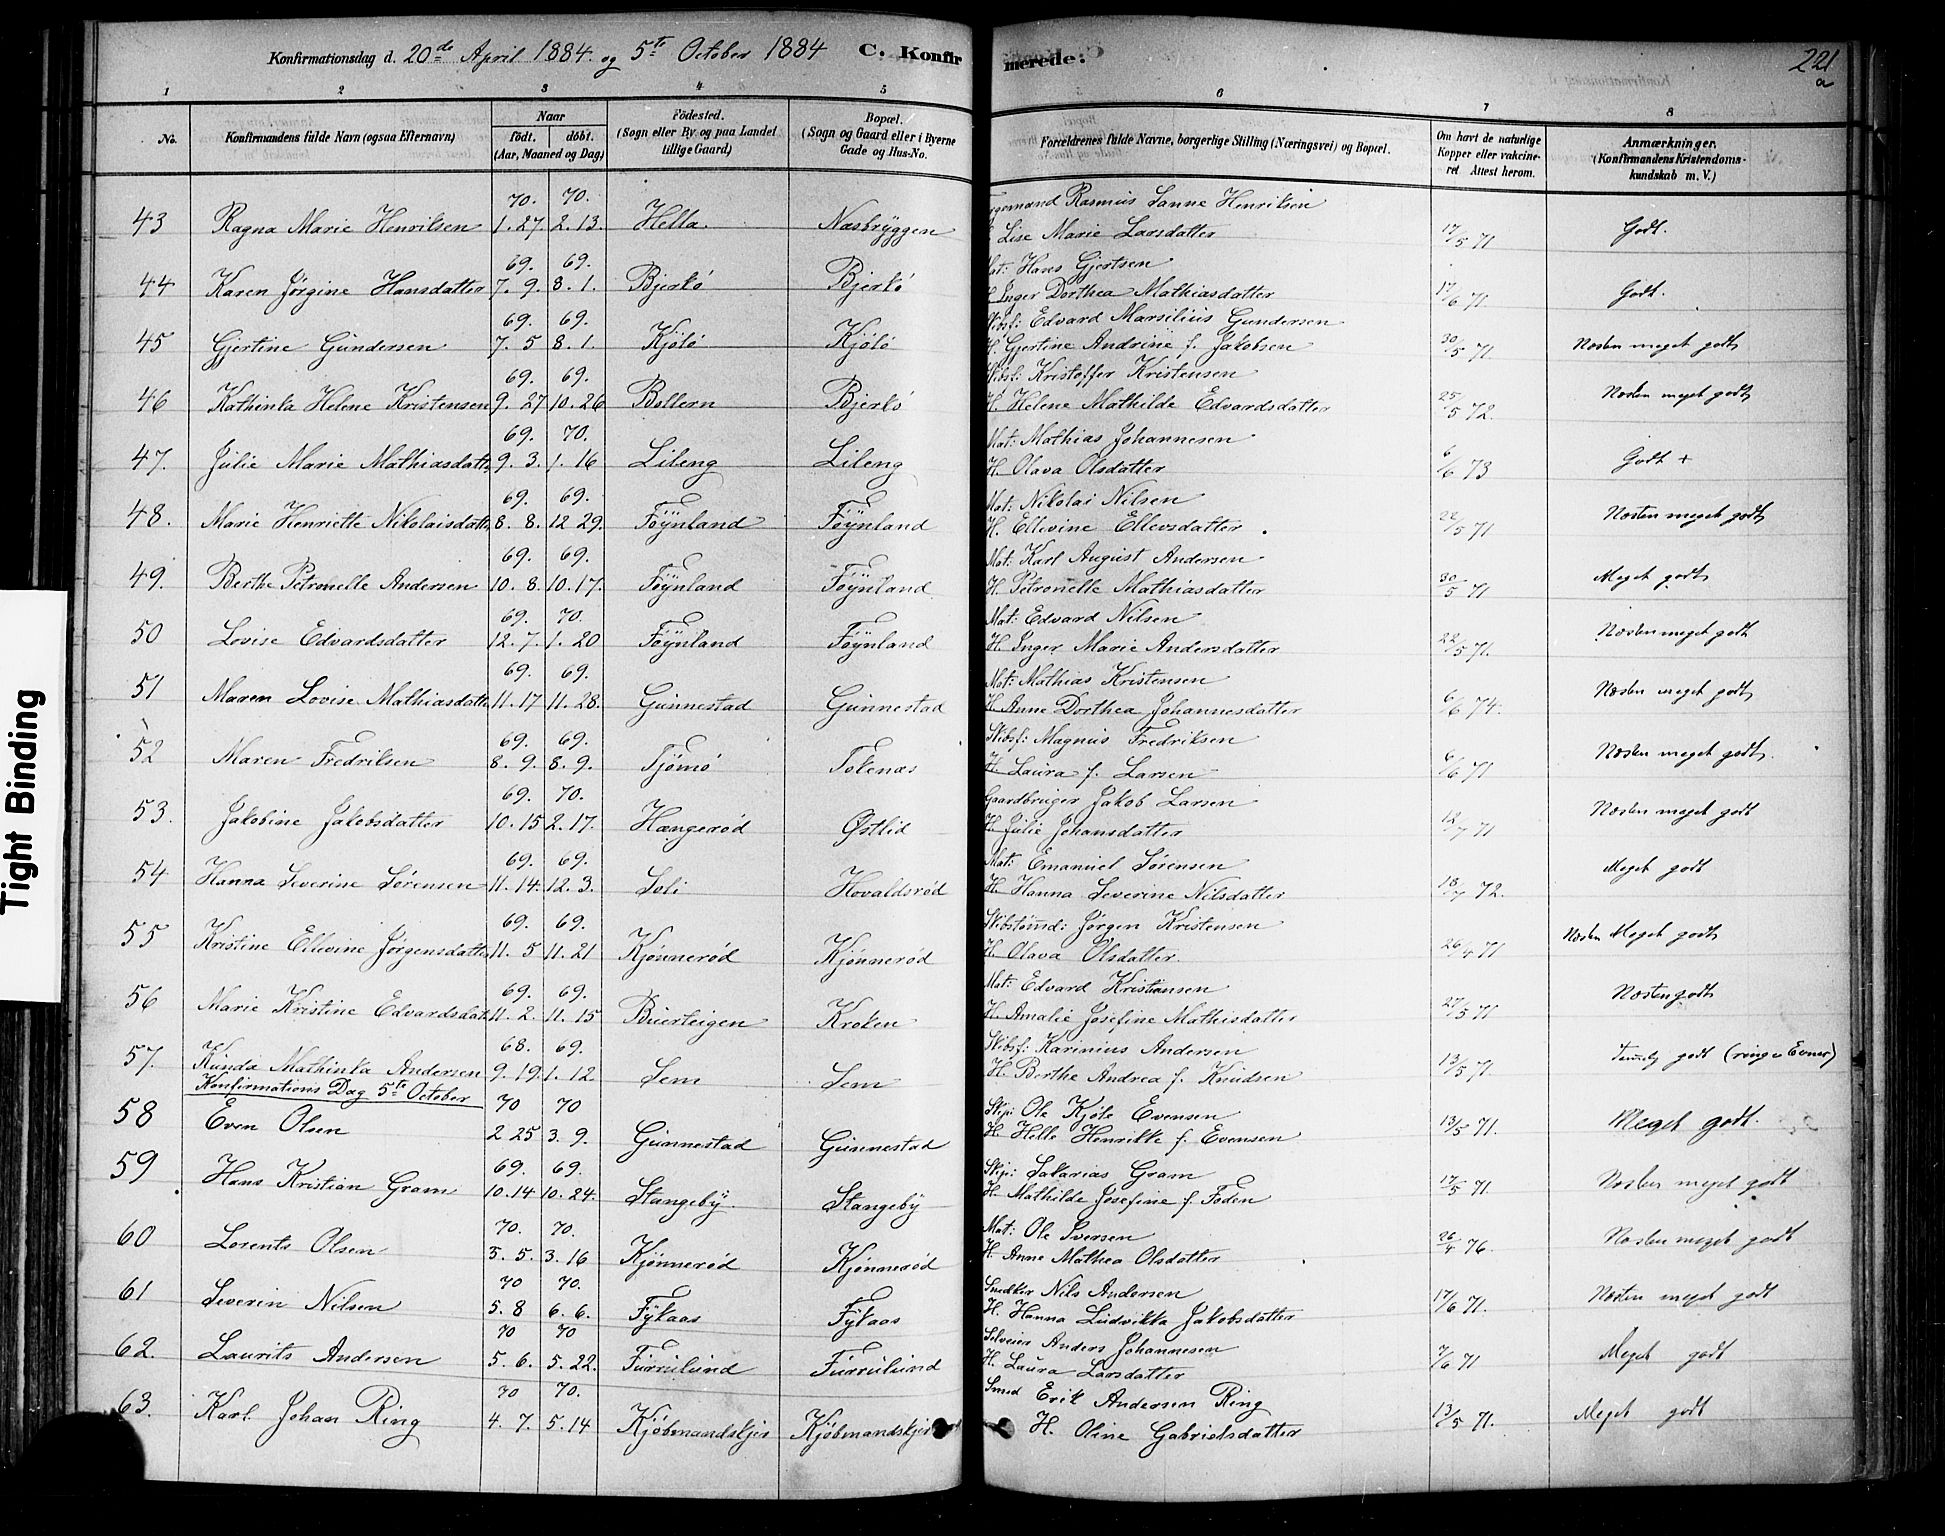 Konfirmationsdag d. 20de April 1884. og 5te October 1884 C. Konfirmerede: 221 a
1 2 3 4 5 6 7 8
No. Konfirmandens fulde Navn (ogsaa Efternavn) Naar født. døbt. (Aar, Maaned og Dag) Födested. (Sogn eller By og paa Landet tillige Gaard) Bopæl. (Sogn og Gaard eller i Byerne Gade og Hus-No. Forældrenes fulde Navne, borgerlige Stilling (Næringsvei) og Bopæl. Om havt de naturlige Kopper eller vakcineret Attest herom. Anmærkninger. (Konfirmandens Kristendomskundskab m. V.)
70. 70. Rasmus Sanne Henriksen
43 Ragna Marie Henriksen 1. 27. 2. 13. Hella. Næsbryggen Lise Marie Larsdatter 17/5 71 Godt.
69. 69. Mat: Hans Gjertsen
44 Karen Jørgine Hansdatter 7. 9. 8. 1. Bjerkö Bjerkö H. Inger Dorthea Mathiasdatter 17/6 71 Godt.
69. 69. Skibsf: Edvard Marsilius Gundersen
45 Gjertine Gundersen 7. 5 8. 1. Kjölö Kjölö H. Gjertine Andrine f. Jakobsen 30/5 71 Næsten meget godt
69. 69. Skibsf: Kristoffer Kristensen
46 Kathinka Helene Kristensen 9. 27 10. 26 Bollern Bjerkö H. Helene Mathilde Edvardsdatter 25/5 72. Næsten meget godt
69. 70. Mat: Mathias Johannesen
47. Julie Marie Mathiasdatt 9. 3. 1. 16 Lileng Lileng H. Olava Olsdatter 6/6 73 Godt +
69. 69. Mat: Nikolai Nilsen
48. Marie Henriette Nikolaisdatt 8. 8. 12 29. Föynland Föynland H. Ellevine Ellevsdatter 22/5 71 Næsten meget godt
69. 69. Mat: Karl August Andersen
49. Berthe Petronelle Andersen 10. 8. 10. 17. Föynland Föynland H. Petronelle Mathiasdatter 30/5 71 Meget godt
69. 70. Mat: Edvard Nilsen
50 Lovise Edvardsdatter 12. 7. 1. 20 Föynland Föynland H. Inger Marie Andersdatter 22/5 71. Næsten meget godt
69. 69. Mat: Mathias Kristensen
51 Maren Lovise Mathiasdatt 11. 17 11. 28. Gunnestad Gunnestad H. Anne Dorthea Johannesdatter 6/6 74. Næsten meget godt
69. 69. Skibsf: Magnus Fredriksen
52 Maren Fredriksen 8. 9. 8. 9. Tjömö Tokenæs H. Laura f. Larsen 6/6 71 Næsten meget godt.
69. 70. Gaardbruger Jakob Larsen
53. Jakobine Jakobsdatter 10. 15 2. 17. Hængerød Østlid H. Julie Johansdatter 12/7 71 Næsten meget godt
69. 69. Mat: Emanuel Sørensen
54 Hanna Severine Sørensen 11. 14. 12. 3. Soli Hovaldsrød H. Hanna Severine Nilsdatter 18/7 72. Meget godt
69. 69. Skibstømd: Jørgen Kristensen
55 Kristine Ellevine Jørgensdatter 11. 5 11. 21 Kjønnerød Kjønnerød H. Olava Olsdatter. 26/4 71 Næsten Meget godt
69. 69. Mat: Edvard Kristiansen
56 Marie Kristine Edvardsdat 11. 2. 11. 15 Buerteigen Kroken H. Amalie Josefine Mathisdatter 27/5 71 Næsten godt
68. 69. Skibsf: Karinius Andersen
57. Kunda Mathinka Andersen 9. 19. 1. 12. Sem Sem H. Berthe Andrea f. Knudsen 13/5 71. Temlig godt (ringe Evner)
Konfirmations Dag 5te October
70 70 Skip: Ole Kjøle Evensen
58 Even Olsen 2 25 3. 9. Gunnestad Gunnestad H. Helle Henrikke f. Evensen 13/5 71. Meget godt.
69. 69. Skip: Sakarias Gram
59 Hans Kristian Gram 10. 14 10. 24. Stangeby. Stangeby H. Mathilde Josefine f. Foden 17/5 71. Næsten meget godt
70. 70. Mat: Ole Iversen
60 Lorents Olsen 3. 5. 3. 16 Kjønnerød Kjønnerød H. Anne Mathea Olsdatter 26/4 76. Næsten meget godt
70 70. Snedker Nils Andersen
61 Severin Nilsen 5. 8 6. 6. Fykaas Fykaas H. Hanna Ludvikka Jakobsdatter 17/6 71. Næsten meget godt
70 70 Selveier Anders Johannesen
62. Laurits Andersen 5. 6. 5. 22. Furrulund Furrulund H. Laura Larsdatter 7/6 71 Meget godt
70 70. Smed Erik Andersen Ring
63. Karl Johan Ring 4. 7. 5. 14 Kjöbmandskjær Kjöbmandskjær H. Oline Gabrielsdatter 13/5 71. Meget godt
Tight Binding